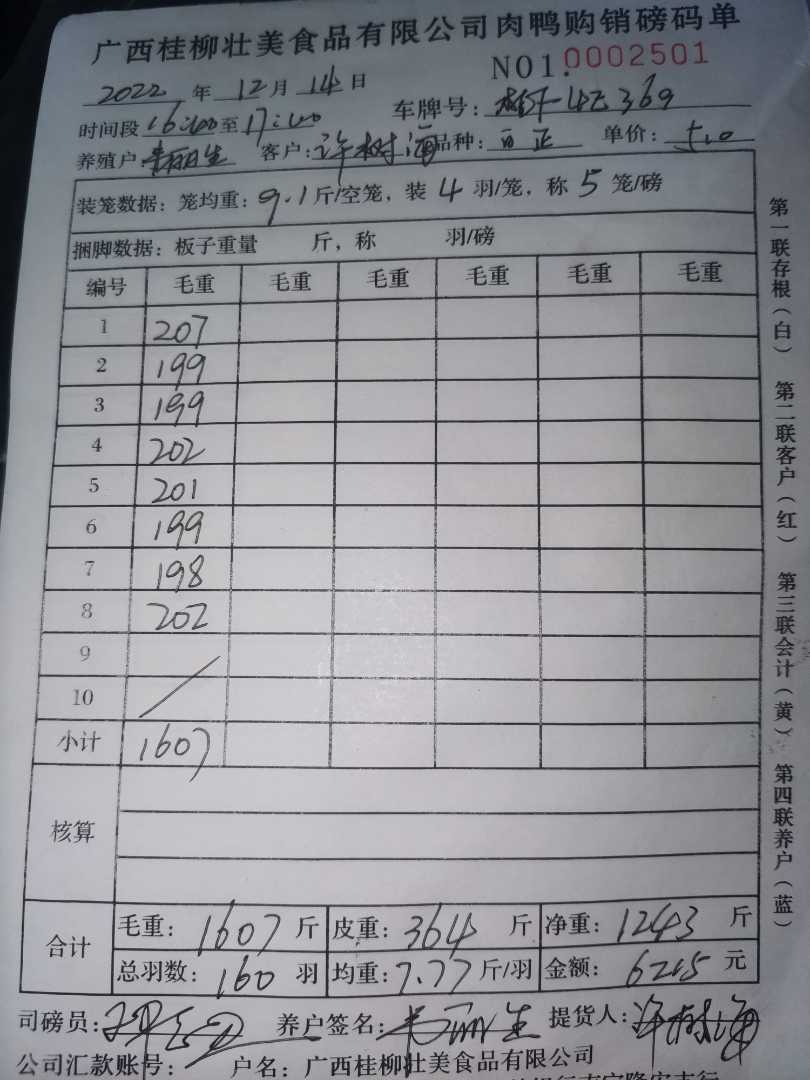 广西桂柳壮美食品有限公司肉鸭购销磅码单
2022 年 12 月 14 日 NO1.0002501
时间段 16:00 至 17:00 车牌号: 369
养殖户 丽生 客户: 许树海 品种: 单价: 5.0
装笼数据: 笼均重: 9.1 斤/空笼, 装 4 羽/笼, 称 5 笼/磅
捆脚数据: 板子重量 斤, 称 羽/磅
编号 毛重 毛重 毛重 毛重 毛重 毛重
1 207
2 199
3 199
4 202
5 201
6 199
7 198
8 202
9
10
小计 1607
核算
合计 毛重: 1607 斤 皮重: 364 斤 净重: 1243 斤
总羽数: 160 羽 均重: 7.77 斤/羽 金额: 6215 元
司磅员: 养户签名: 丽生 提货人: 许树海
公司汇款账号: 户名: 广西桂柳壮美食品有限公司
第一联存根(白) 第二联客户(红) 第三联会计(黄) 第四联养户(蓝)